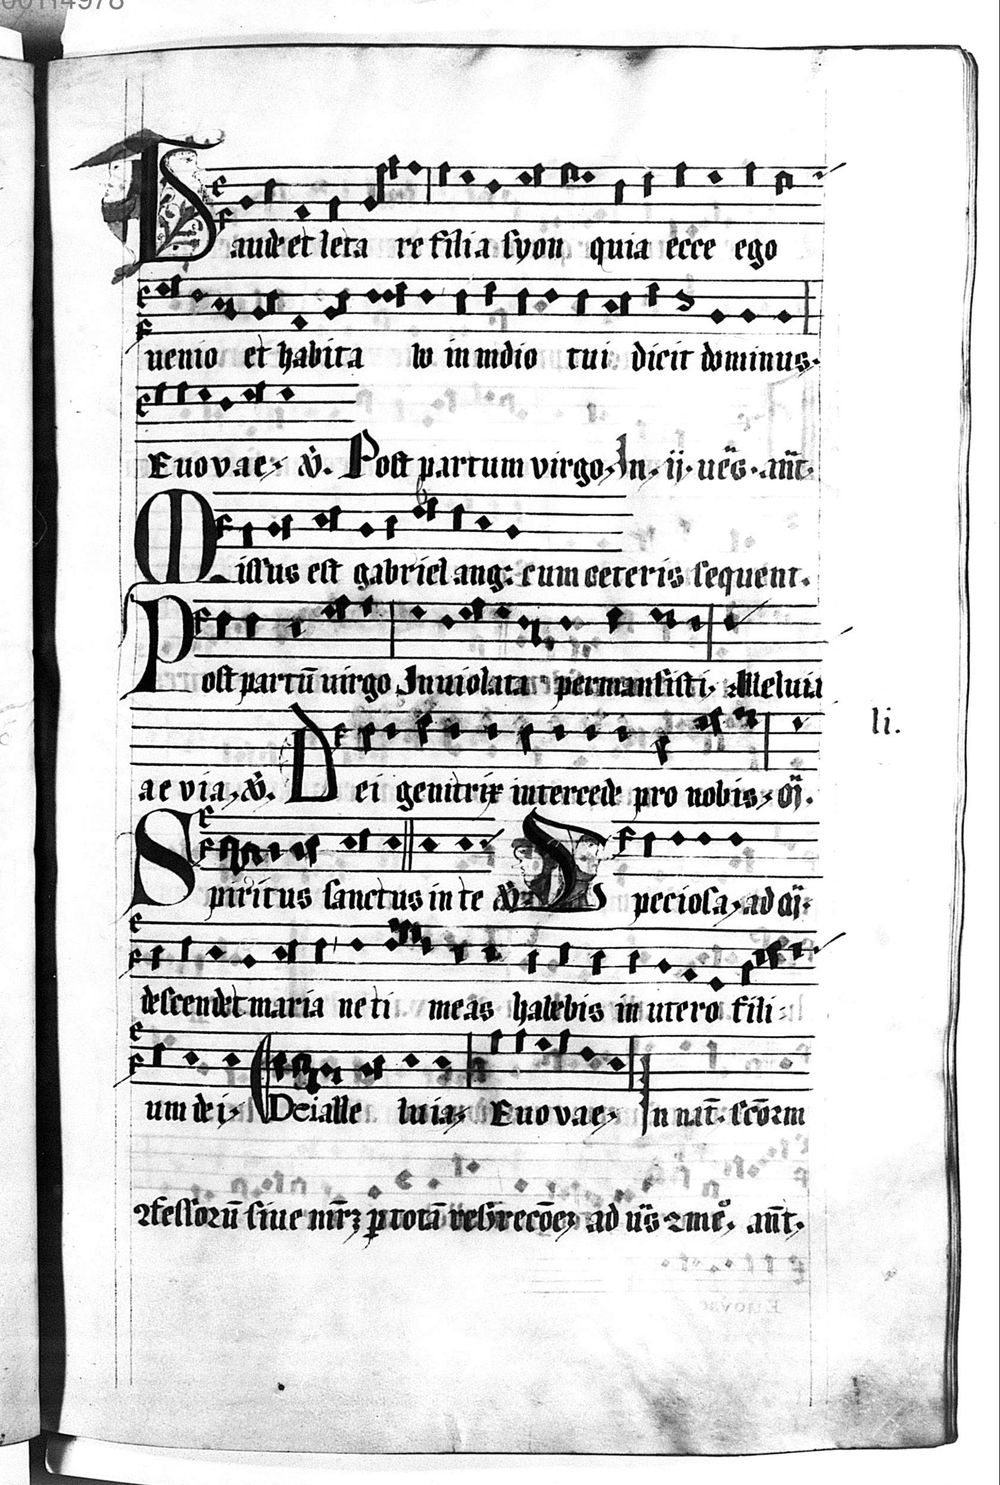 00114978
Gaude et leta re filia syon quia ecce ego
uenio et habita bo in mdio tui dicit dominus.
Euovae, V̄. Post partum virgo, In, ij. ue᷑s. ant̄.
Missus est gabriel ang: cum ceteris sequent.
Post partū uirgo Inuiolata permansisti, Alleluia
ae via, V̄. Dei genitrix intercede pro nobis, Q̄.
li.
Spiritus sanctus in te V̄ Speciosa, ad Q̄.
descendet maria ne ti meas habebis in utero fili
um dei, Dei alle luia, Euovae, In nat̄. sc̄orm
ꝯfessorū siue mr̄ꝫ ꝑ totā